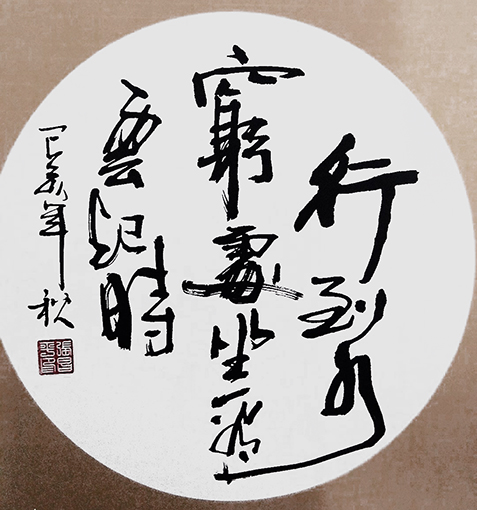 行到水
窮處坐看
雲起時
己亥年秋